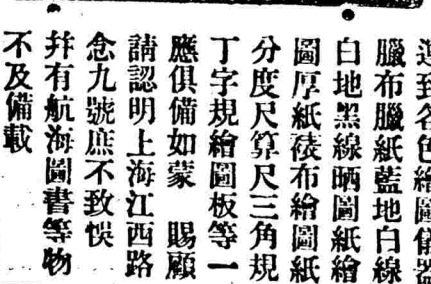 運到各色繪圖儀器
臘布臘紙藍地白線
白地黑線晒圖紙繪
圖厚紙蔆布繪圖紙
分度尺算尺三角規
丁字規繪圖板等一
應俱備如蒙 賜顧
請認明上海江西路
念九號庶不致悮
幷有航海圖書等物
不及備載